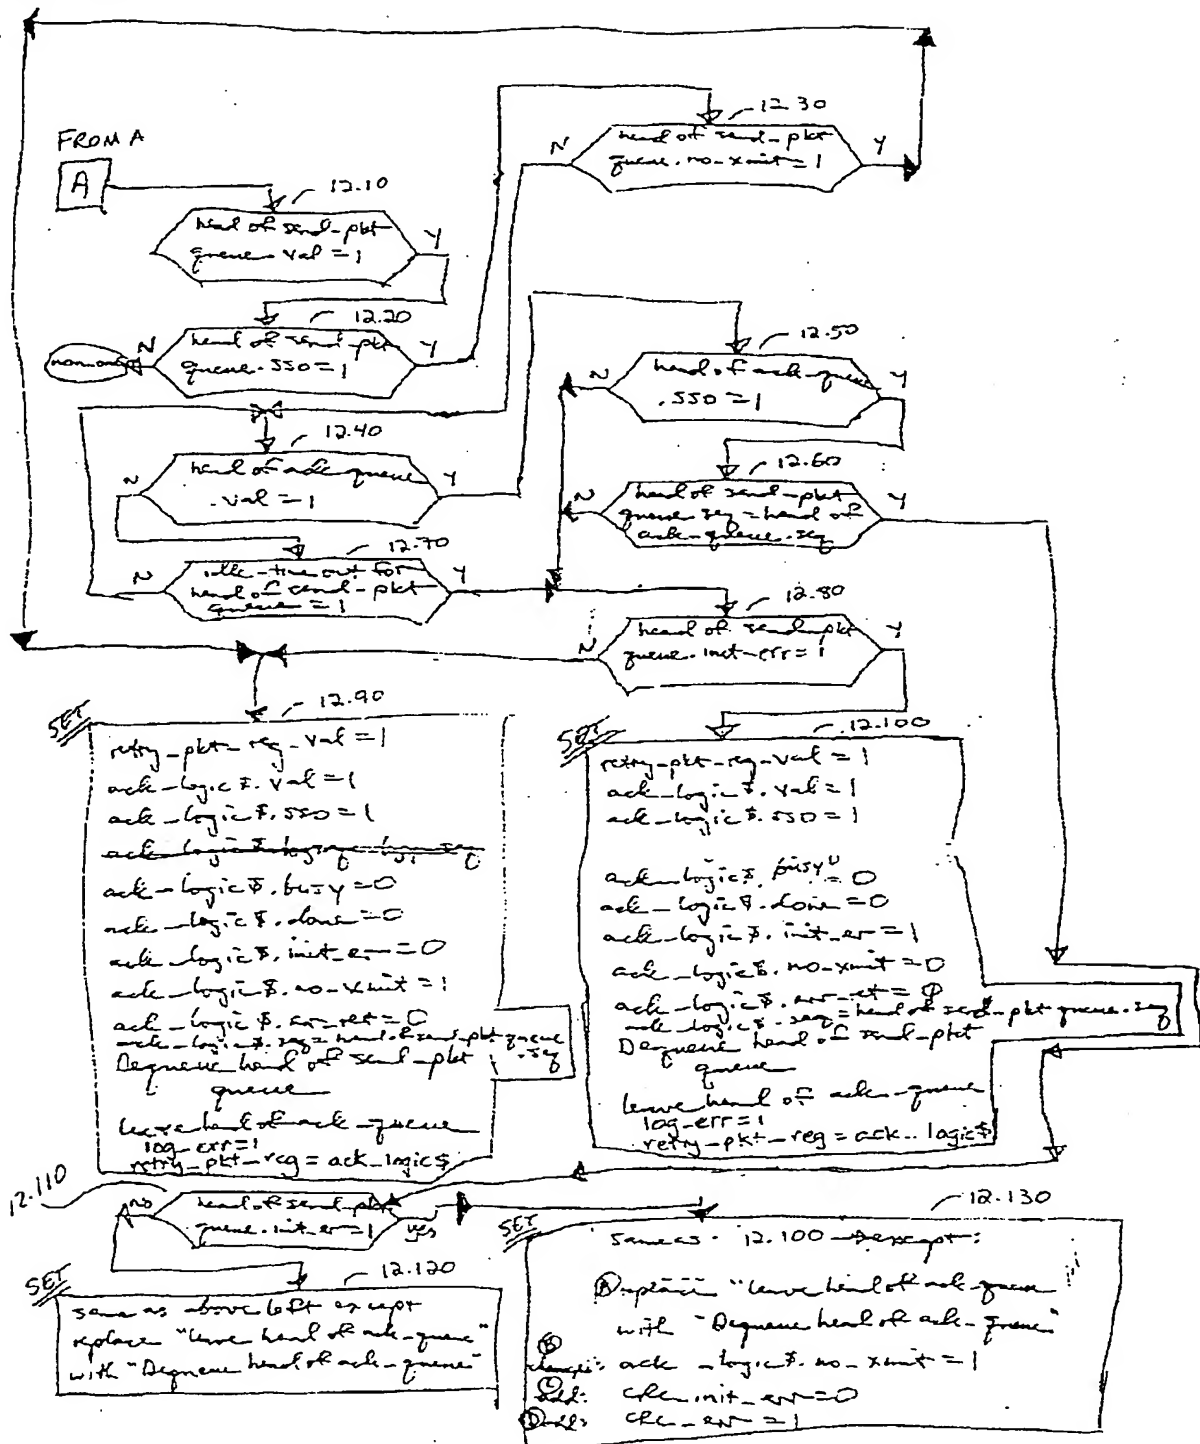 12.30
head of send-pkt
queue.no-xmit=1
N
Y
FROM A
A
12.10
head of send-pkt
queue.val=1
Y
12.20
head of send-pkt
queue.sso=1
N
Y
12.50
head of ack-queue
.sso=1
N
Y
12.40
head of ack-queue
.val=1
N
Y
12.60
head of send-pkt
queue.seq=head of
ack-queue.seq
N
Y
12.70
idle-time out for
head of send-pkt
queue=1
N
Y
12.80
head of send-pkt
queue.init-err=1
N
Y
12.90
SET
retry_pkt_reg_val=1
ack_logic$.val=1
ack_logic$.sso=1
ack_logic$.busy=0
ack_logic$.done=0
ack_logic$.init_err=0
ack_logic$.no-xmit=1
ack_logic$.err_ret=0
ack_logic$.seq=head of send_pkt queue
.seq
Dequeue head of send_pkt
queue
leave head of ack_queue
log_err=1
retry_pkt_reg=ack_logic$
12.100
SET
retry-pkt-reg-val=1
ack_logic$.val=1
ack_logic$.sso=1
ack_logic$.busy=0
ack_logic$.done=0
ack_logic$.init_er=1
ack_logic$.no-xmit=0
ack_logic$.err_ret=0
ack_logic$.seq=head of send_pkt queue.seq
Dequeue head of send-pkt
queue
leave head of ack_queue
log_err=1
retry_pkt_reg=ack_logic$
12.110
head of send-pkt
queue.init_er=1
no
yes
12.120
SET
same as above left except
replace "leave head of ack-queue"
with "Dequeue head of ack-queue"
12.130
SET
same as 12.100 except:
A replace "leave head of ack-queue
with "Dequeue head of ack-queue"
B
change: ack_logic$.no-xmit=1
C
add: crc_init_err=0
D add: crc_err=1